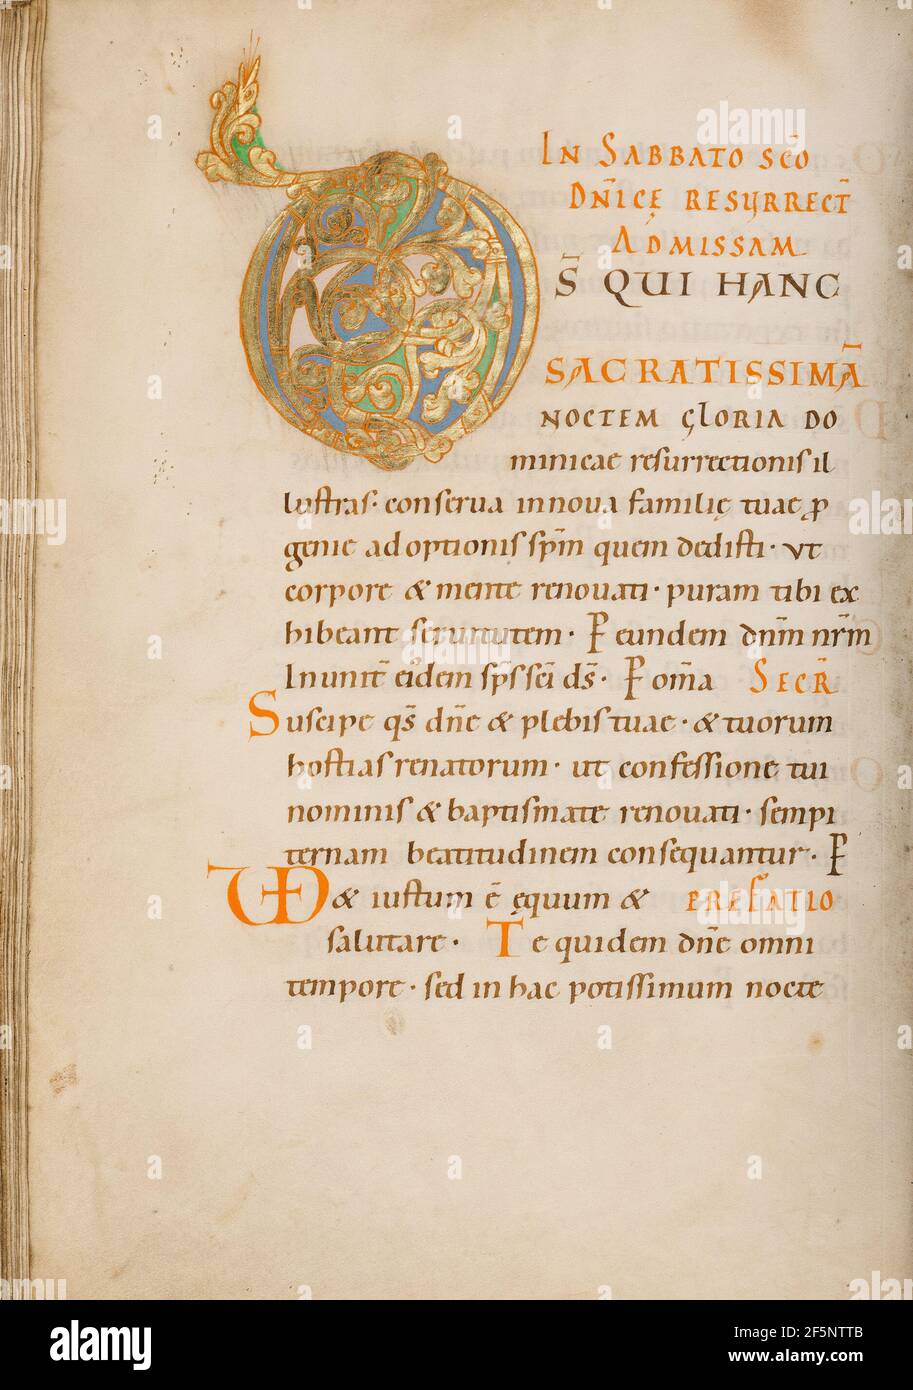 IN SABBATO SC̄O
DN̄ICĘ RESURRECT̄
AD MISSAM
D S̄ QUI HANC
SACRATISSIMĀ
NOCTEM GLORIA DO
minicae resurrectionis il
lustras · conserva in nova familię tuae ꝓ
genie adoptionis sp̄m quem dedisti · ut
corpore & mente renovati · puram tibi ex
hibeant servitutem · P eundem dn̄m nr̄m
In unit̄ eidem sp̄s sc̄i ds̄ · P om̄a SECR̄
Suscipe qs̄ dn̄e & plebis tuae · & tuorum
hostias renatorum · ut confessione tui
nominis & baptismate renovati · sempi
ternam beatitudinem consequantur · P
VD & iustum ē ęquum & PREFATIO
salutare · Te quidem dn̄e omni
tempore · sed in hac potissimum nocte
alamy
Image ID: 2F5NTTB
www.alamy.com